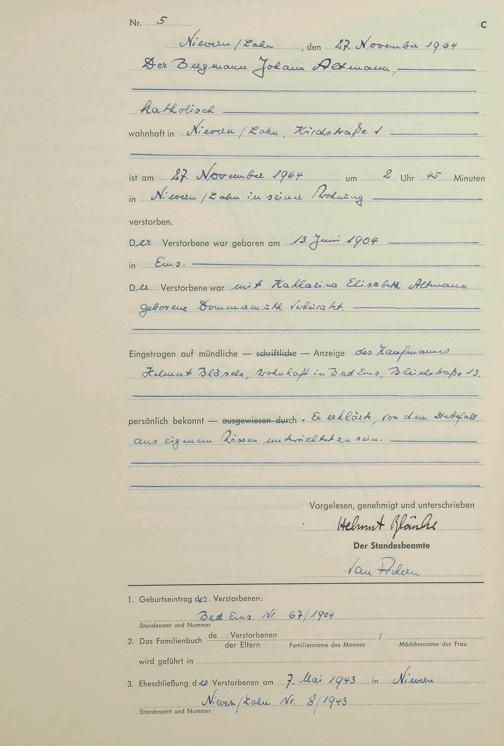 Nr. 5 C
Nievern/Lahn, den 27. November 1964
Der Bergmann Johann Altmann,
katholisch
wohnhaft in Nievern/Lahn, Kirchstraße 1
ist am 27. November 1964 um 2 Uhr 45 Minuten
in Nievern/Lahn in seiner Wohnung
verstorben.
Der Verstorbene war geboren am 13. Juni 1904
in Ems.
Der Verstorbene war mit Katharina Elisabeth Altmann
geborene Dommermuth verheiratet.
Eingetragen auf mündliche — schriftliche — Anzeige des Kaufmannes
Helmut, wohnhaft in Bad Ems, Blücherstraße 13.
persönlich bekannt — ausgewiesen durch. Er erklärte, von dem Sterbefall
aus eigenem Wissen unterrichtet zu sein.
Vorgelesen, genehmigt und unterschrieben
Helmut
Der Standesbeamte
1. Geburtseintrag des Verstorbenen:
Bad Ems Nr. 67/1904
Standesamt und Nummer
2. Das Familienbuch de Verstorbenen /
der Eltern Familienname des Mannes Mädchenname der Frau
wird geführt in
3. Eheschließung des Verstorbenen am 7. Mai 1943 in Nievern
Nievern/Lahn Nr. 8/1943
Standesamt und Nummer